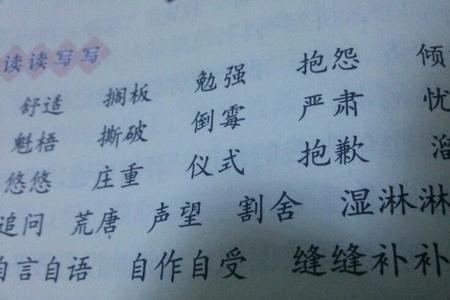 读读写写
舒适 搁板 勉强 抱怨 倾
魁梧 撕破 倒霉 严肃 忧
悠悠 庄重 仪式 抱歉 溜
追问 荒唐 声望 割舍 湿淋淋
自言自语 自作自受 缝缝补补